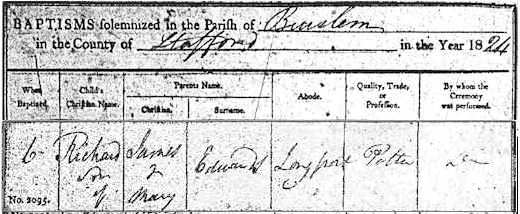 BAPTISMS solemnized in the Parish of Burslem
in the County of Stafford in the Year 1824
When Baptized. Child's Christian Name. Parents Name. Christian. Surname. Abode. Quality, Trade, or Profession. By whom the Ceremony was performed.
6 Richard James Edwards Longport Potter
son of & Mary
No. 2095.